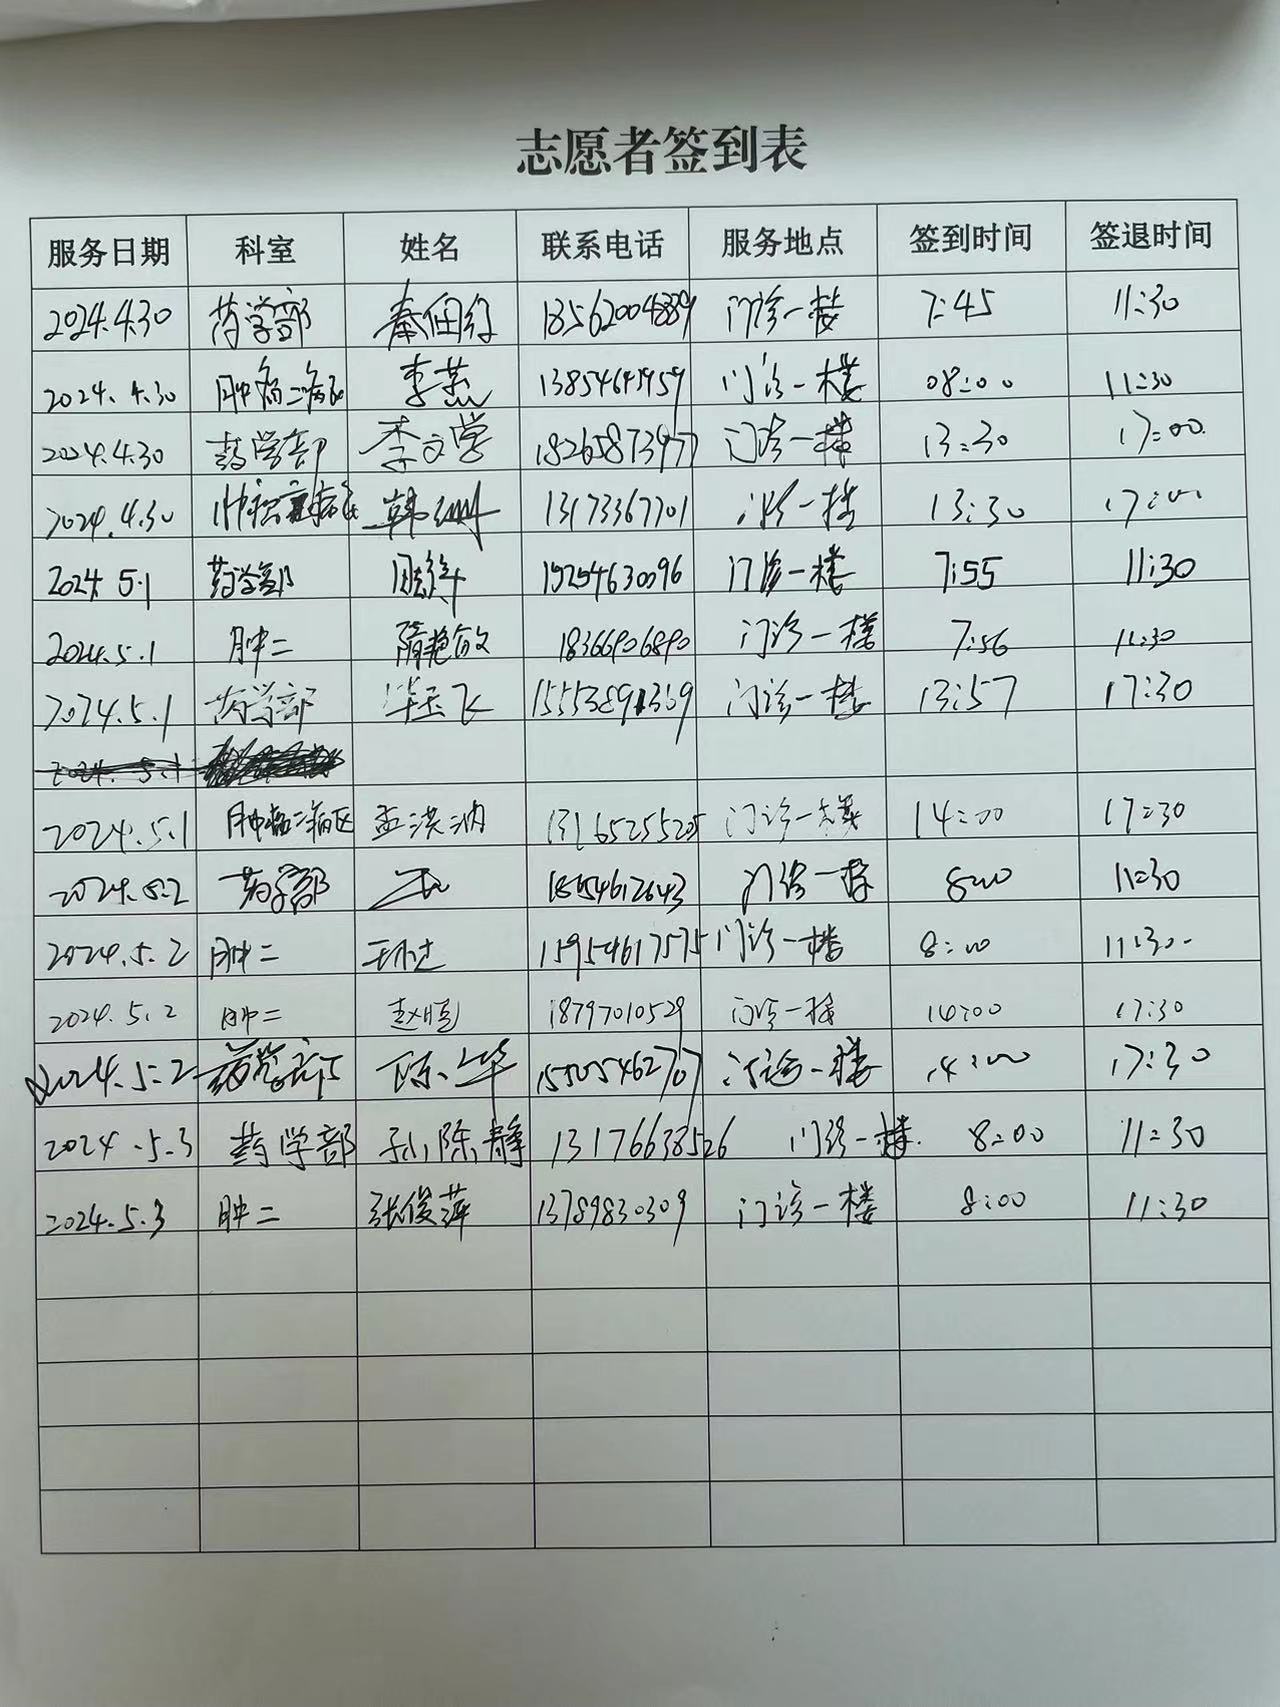 志愿者签到表
服务日期 科室 姓名 联系电话 服务地点 签到时间 签退时间
2024.4.30 药学部 18562004889 门诊一楼 7:45 11:30
2024.4.30 肿瘤二病区 李燕 门诊一楼 08:00 11:30
2024.4.30 药学部 李文学 18265873977 门诊一楼 13:30 17:00
2024.4.30 韩 13173367701 门诊一楼 13:30 17:00
2024.5.1 药学部 15254630096 门诊一楼 7:55 11:30
2024.5.1 肿二 隋艳敏 18366906890 门诊一楼 7:56 11:30
2024.5.1 药学部 毕玉飞 15553891369 门诊一楼 13:57 17:30
2024.5.1
2024.5.1 肿瘤二病区 孟洪娜 13165255205 门诊一楼 14:00 17:30
2024.5.2 药学部 18654612643 门诊一楼 8:00 11:30
2024.5.2 肿二 15954617575 门诊一楼 8:00 11:30
2024.5.2 肿二 18797010529 门诊一楼 14:00 17:30
2024.5.2 药学部 陈华 15505462707 门诊一楼 14:00 17:30
2024.5.3 药学部 孙陈静 13176638526 门诊一楼 8:00 11:30
2024.5.3 肿二 张俊萍 13789830309 门诊一楼 8:00 11:30